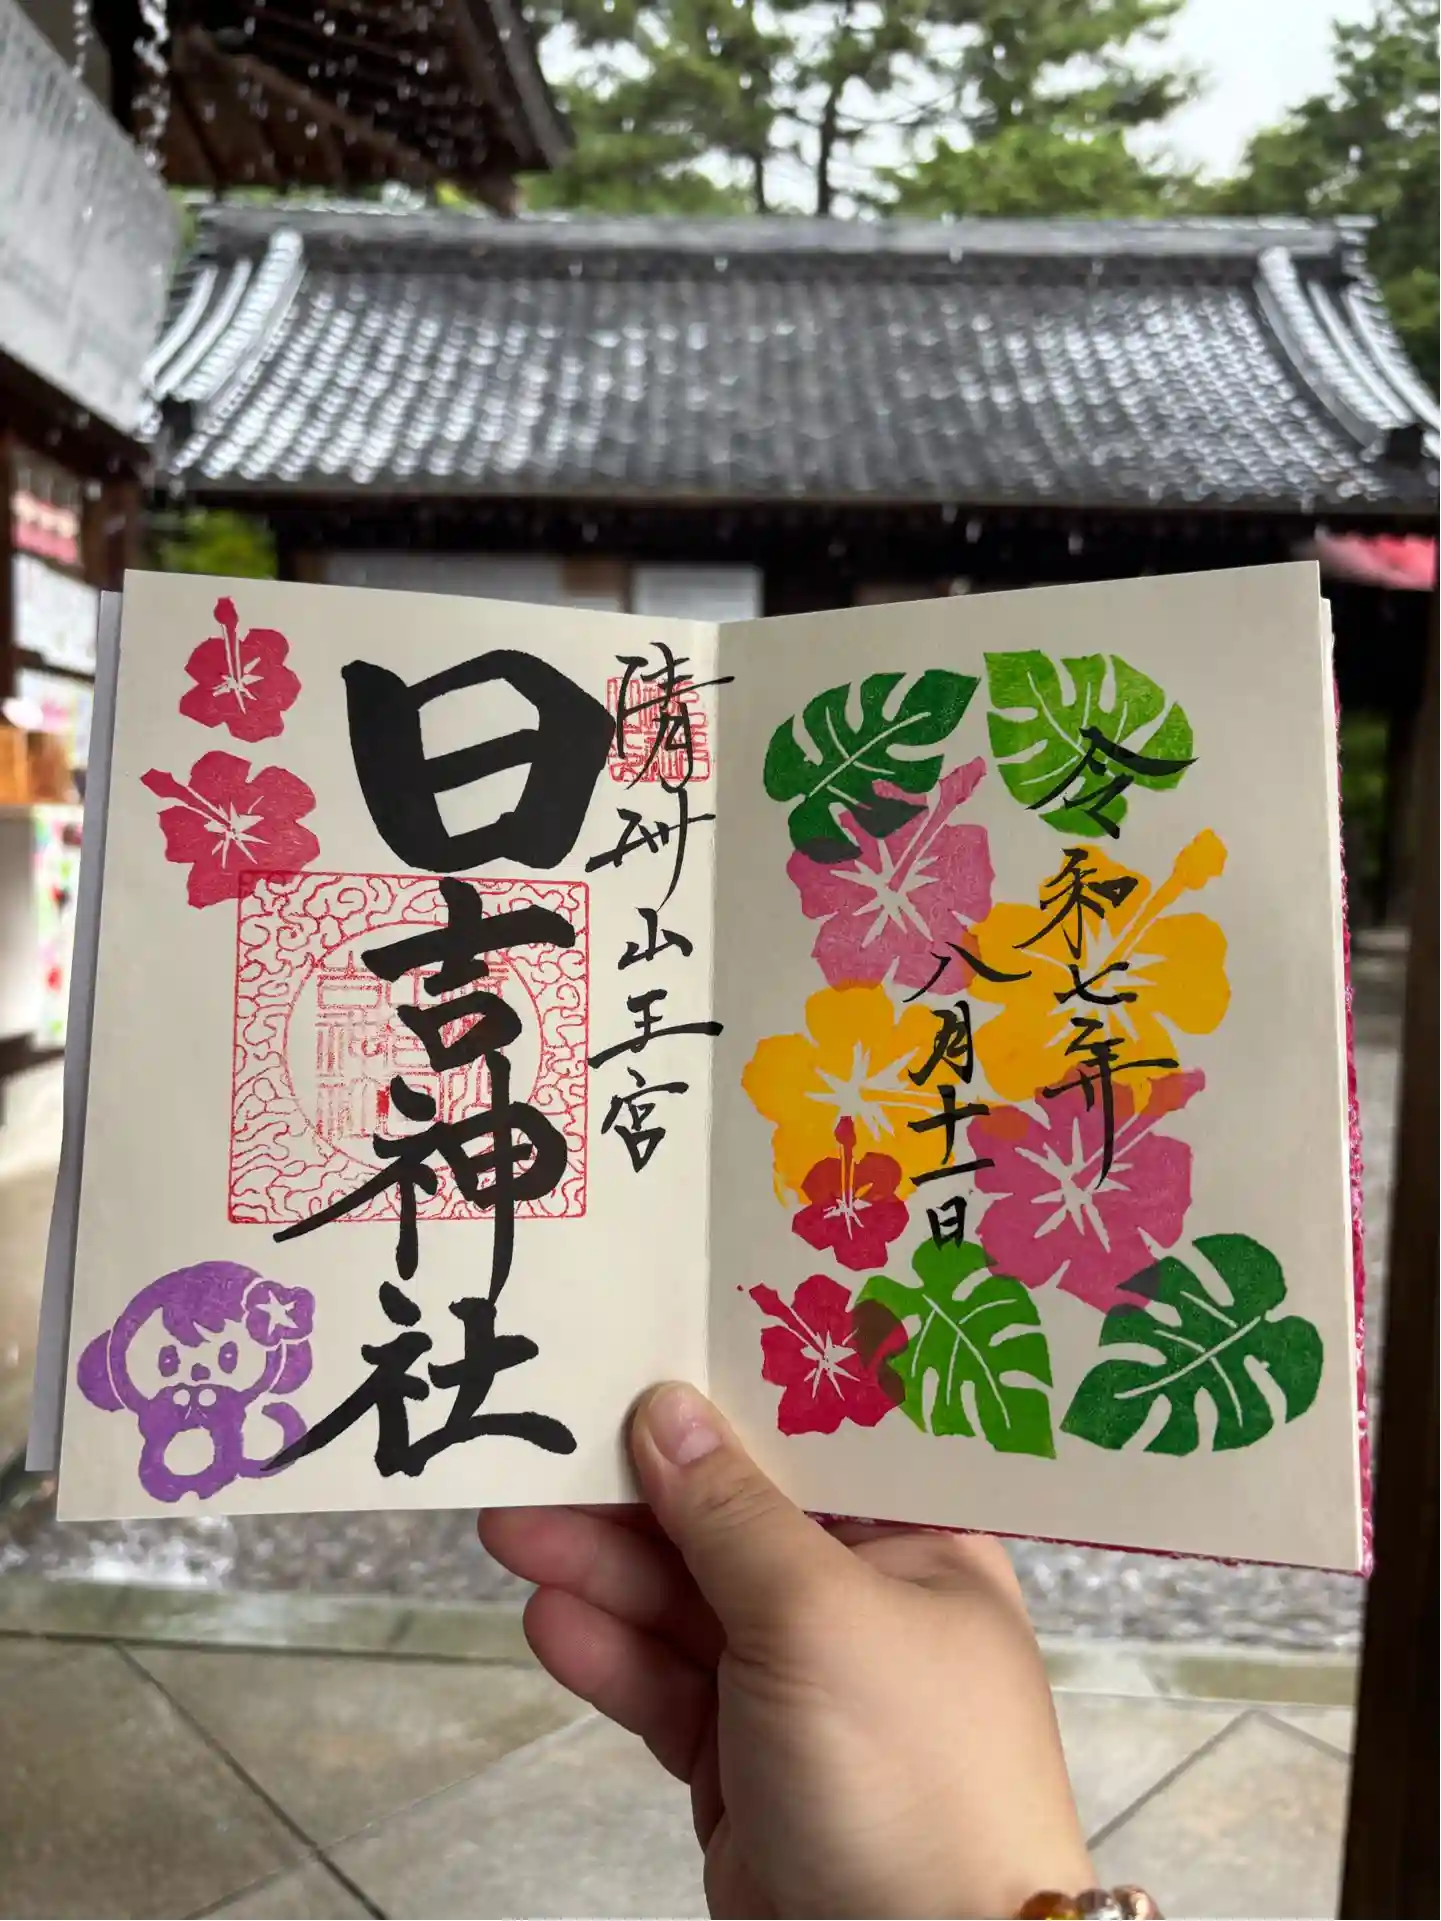 令和七年
八月十一日
清洲山王宮
日吉神社